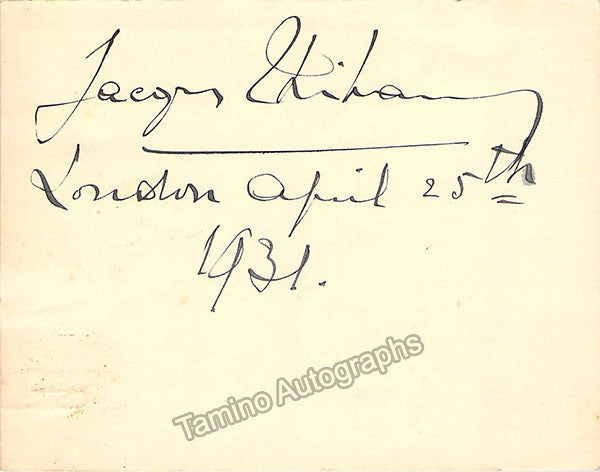 Jacques Thibaud
London April 25th
1931.
Tamino Autographs